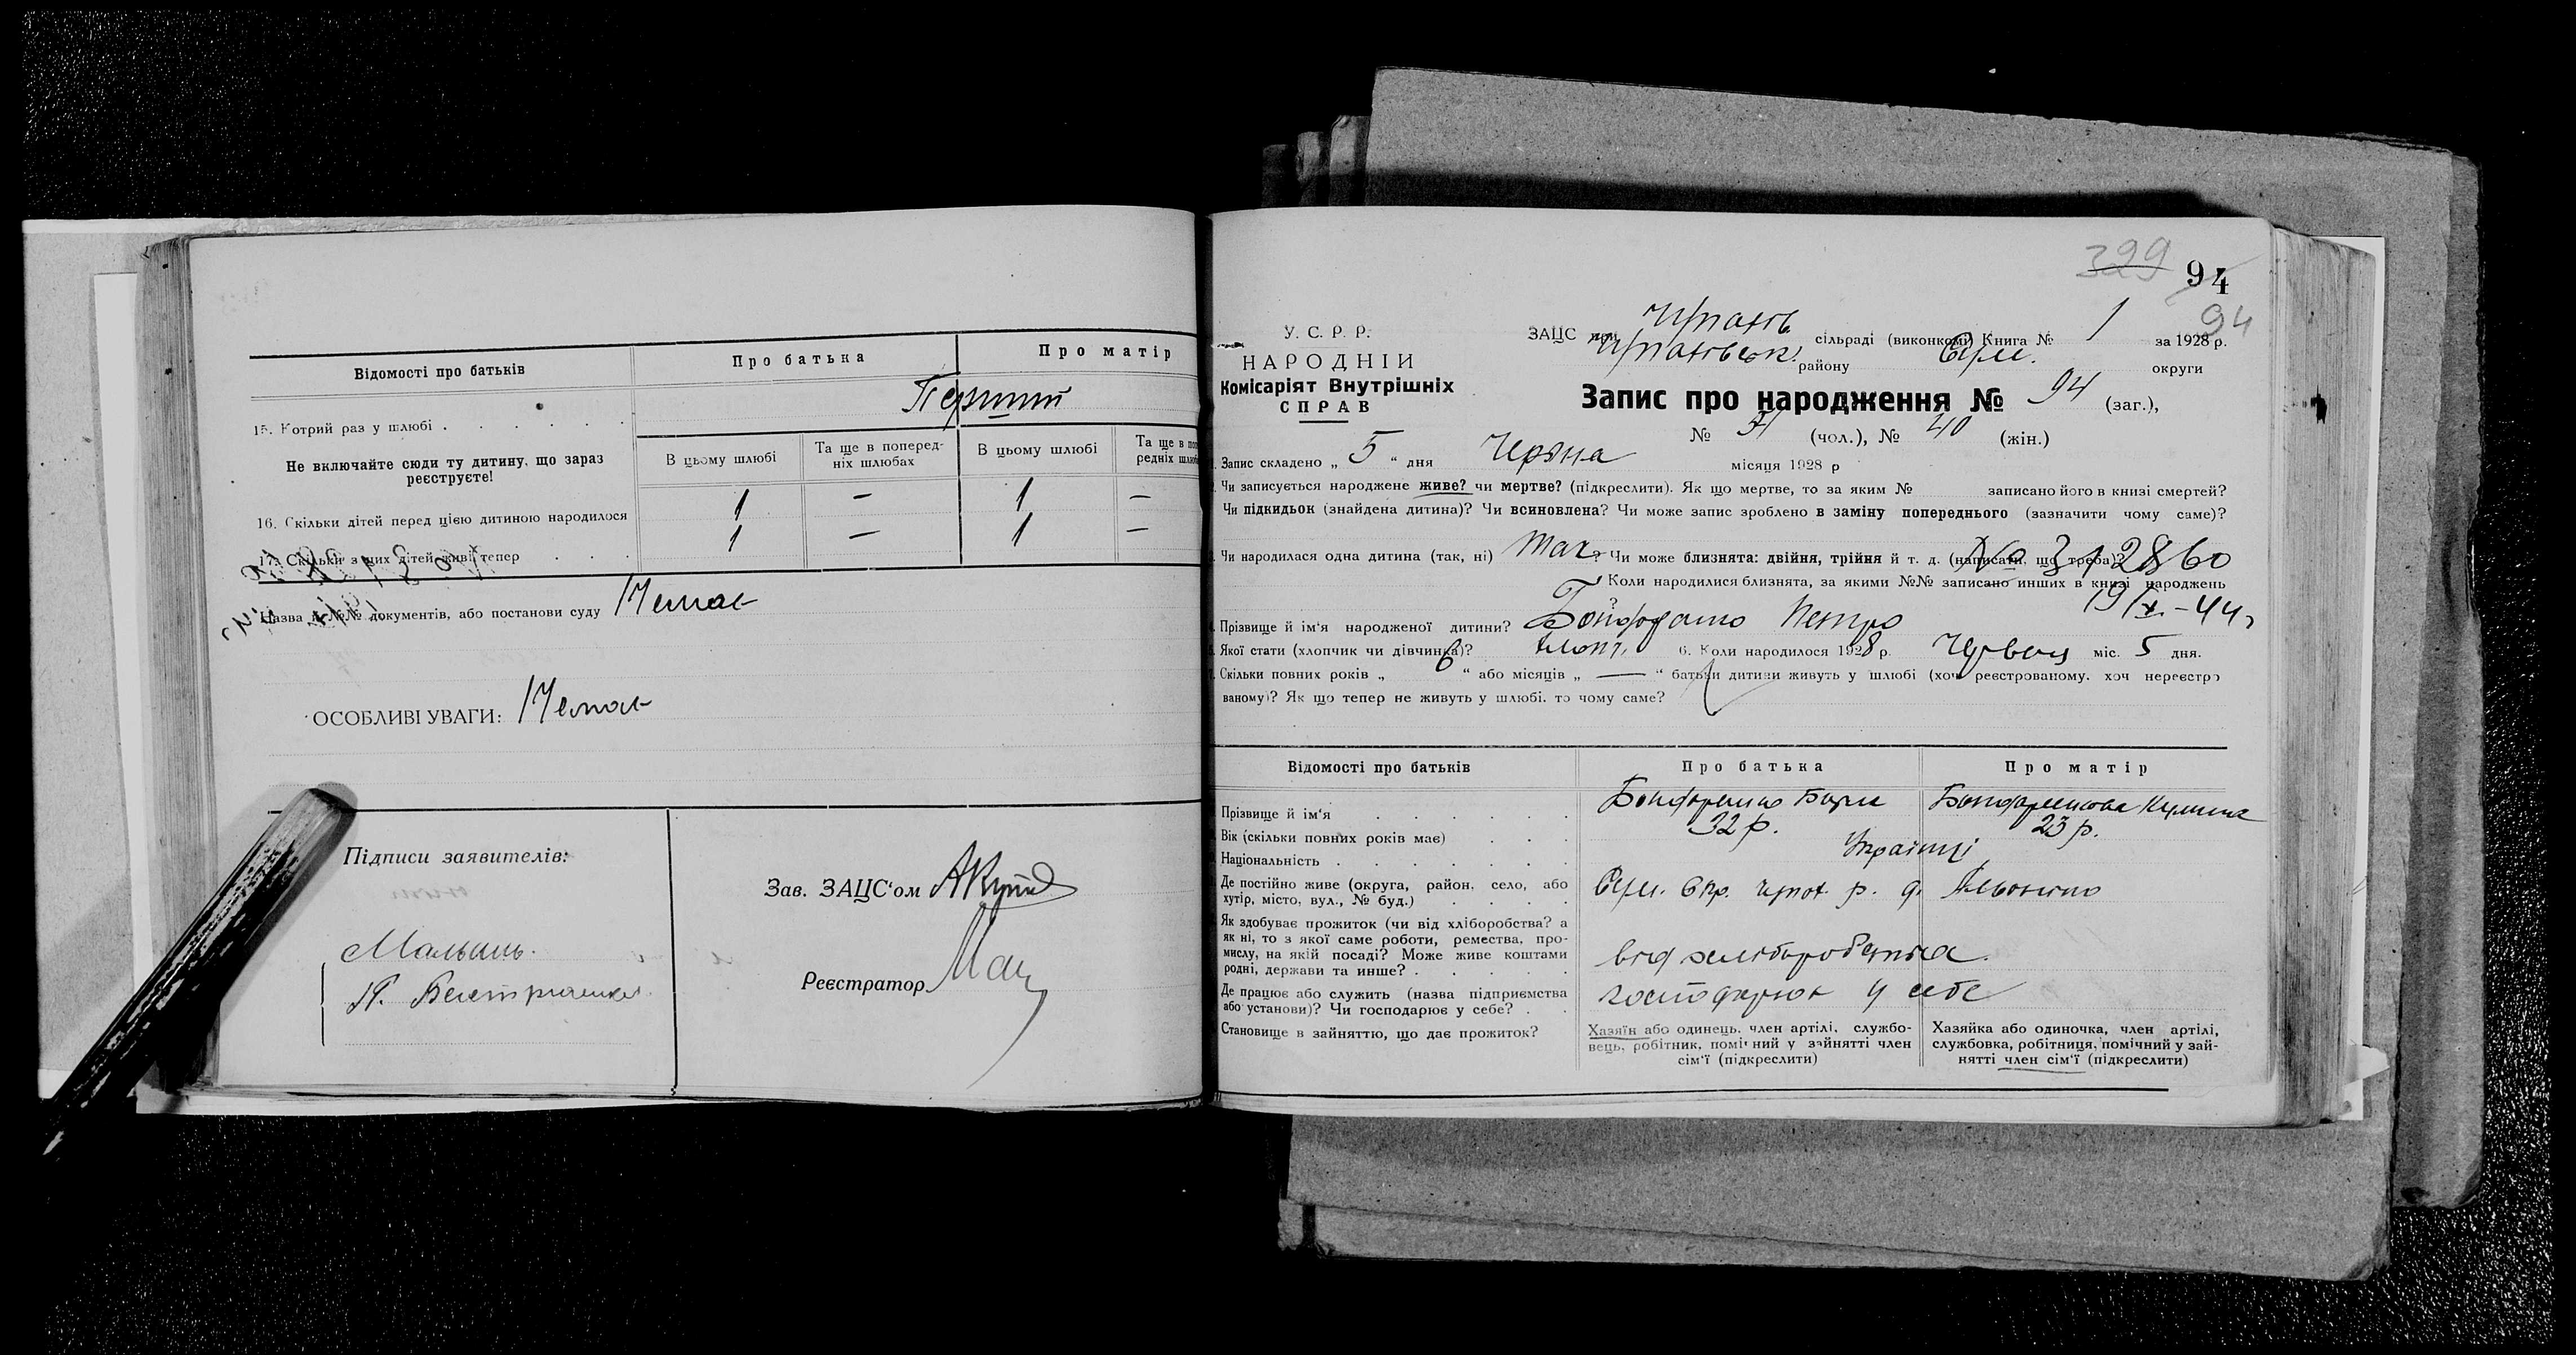 Відомості про батьків
Про батька
Про матір
15. Котрий раз у шлюбі
Перший
Не включайте сюди ту дитину, що зараз реєструєте!
В цьому шлюбі
Та ще в поперед-
ніх шлюбах
В цьому шлюбі
Та ще в поп
редніх шлюб
16. Скільки дітей перед цією дитиною народилося
1 — 1 —
17. Скільки з них дітей живі тепер
1 — 1 —
Назва й №№ документів, або постанови суду Немає
ОСОБЛИВІ УВАГИ: Немає
Підписи заявителів:
Зав. ЗАЦС'ом
Реєстратор
329 94
94
У. С. Р. Р.
НАРОДНІЙ
Комісаріят Внутрішніх
СПРАВ
ЗАЦС при сільраді (виконкомі) Книга № 1 за 1928 р.
району Сум. округи
Запис про народження № 94 (заг.),
№ 54 (чол.), № 40 (жін.)
Запис складено „ 5 “ дня Червня місяця 1928 р
Чи записується народжене живе? чи мертве? (підкреслити). Як що мертве, то за яким № записано його в книзі смертей?
Чи підкидьок (знайдена дитина)? Чи всиновлена? Чи може запис зроблено в заміну попереднього (зазначити чому саме)?
Чи народилася одна дитина (так, ні) Так ? Чи може близнята: двійня, трійня й т. д. (написати, що треба)?
Коли народилися близнята, за якими №№ записано инших в книзі народжень
?
Прізвище й ім'я народженої дитини? Бондаренко Петро
Якої стати (хлопчик чи дівчинка)? Хлопч. 6. Коли народилося 1928 р. Червень міс. 5 дня.
Скільки повних років „ 6 “ або місяців „ — “ батьки дитини живуть у шлюбі (хоч реєстрованому, хоч нереєстро
ваному)? Як що тепер не живуть у шлюбі, то чому саме?
Відомості про батьків
Про батька
Про матір
Прізвище й ім'я
Бондаренко
Бондаренкова
Вік (скільки повних років має)
32 р.
23 р.
Національність
Українці
Де постійно живе (округа, район, село, або
хутір, місто, вул., № буд.)
Сум. окр.
Як здобуває прожиток (чи від хліборобства? а
як ні, то з якої саме роботи, ремества, про-
мислу, на якій посаді? Може живе коштами
родні, держави та инше?
від хліборобства
Де працює або служить (назва підприємства
або установи)? Чи господарює у себе?
господарює у себе
Становище в зайняттю, що дає прожиток?
Хазяїн або одинець, член артілі, службо-
вець, робітник, помічний у зайнятті член
сім'ї (підкреслити)
Хазяйка або одиночка, член артілі,
службовка, робітниця, помічний у зай-
нятті член сім'ї (підкреслити)